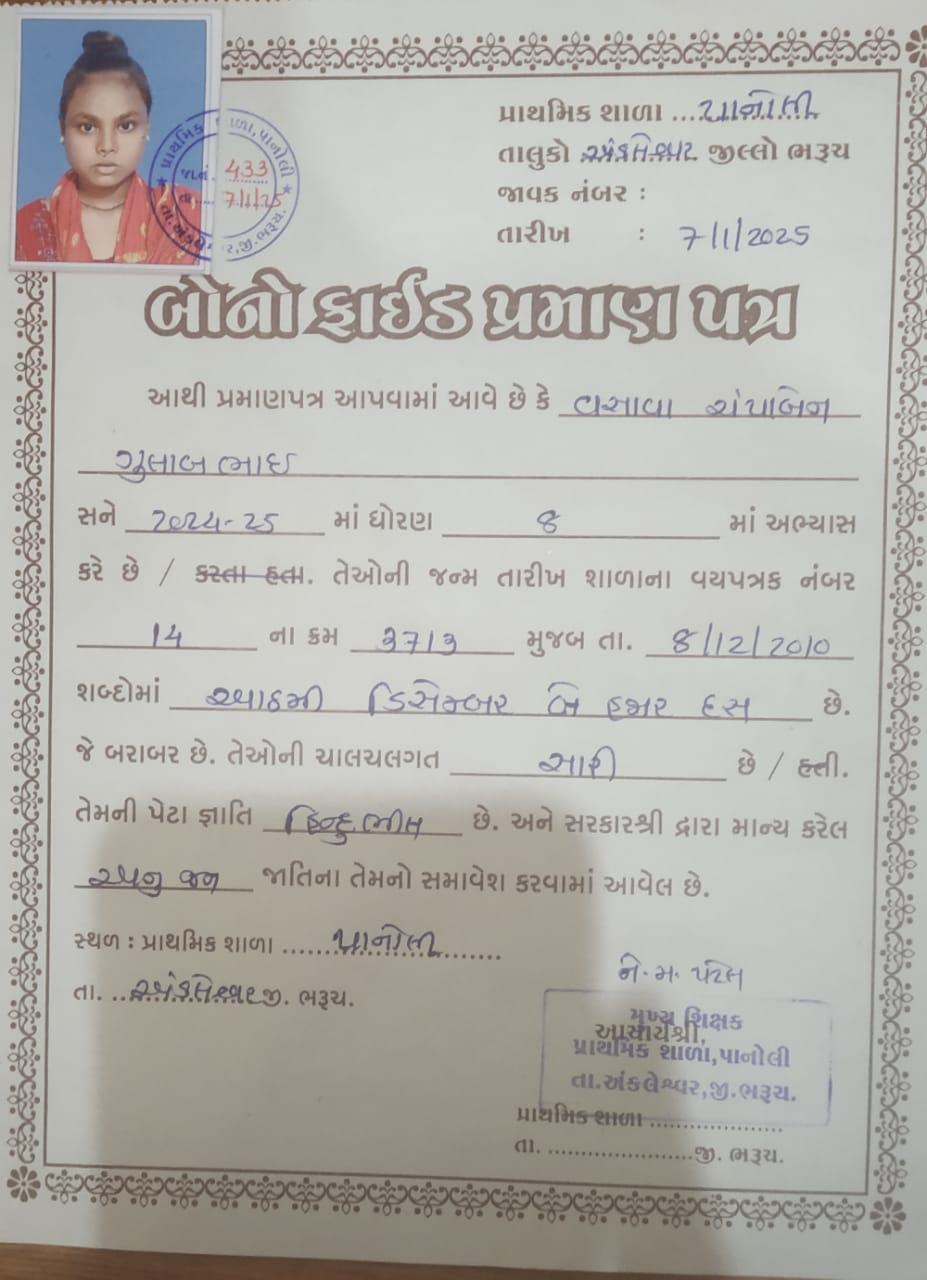 પ્રાથમિક શાળા ....પાનોલી
તાલુકો અંકલેશ્વર જીલ્લો ભરૂચ
જાવક નંબર :
તારીખ : 7/1/2025
પ્રાથમિક શાળા, પાનોલી
જા.નં. 433
તા.... 7/1/25
તા.અંકલેશ્વર,જી.ભરૂચ.
બોનો ફાઈડ પ્રમાણ પત્ર
આથી પ્રમાણપત્ર આપવામાં આવે છે કે વસાવા ચંપાબેન
ગુલાબભાઇ
સને 2024-25 માં ધોરણ 8 માં અભ્યાસ
કરે છે / કરતા હતા. તેઓની જન્મ તારીખ શાળાના વયપત્રક નંબર
14 ના ક્રમ 3713 મુજબ તા. 8/12/2010
શબ્દોમાં આઠમી ડિસેમ્બર બે હજાર દસ છે.
જે બરાબર છે. તેઓની ચાલચલગત સારી છે / હતી.
તેમની પેટા જ્ઞાતિ હિન્દુ ભીલ છે. અને સરકારશ્રી દ્રારા માન્ય કરેલ
અનુ જન જાતિના તેમનો સમાવેશ કરવામાં આવેલ છે.
સ્થળ : પ્રાથમિક શાળા ......પાનોલી......
તા. ...અંકલેશ્વર જી. ભરૂચ.
ને. મ. પટેલ
મુખ્ય શિક્ષક
આચાર્યશ્રી,
પ્રાથમિક શાળા,પાનોલી
તા.અંકલેશ્વર,જી.ભરૂચ.
પ્રાથમિક શાળા ....................
તા. ......................જી. ભરૂચ.